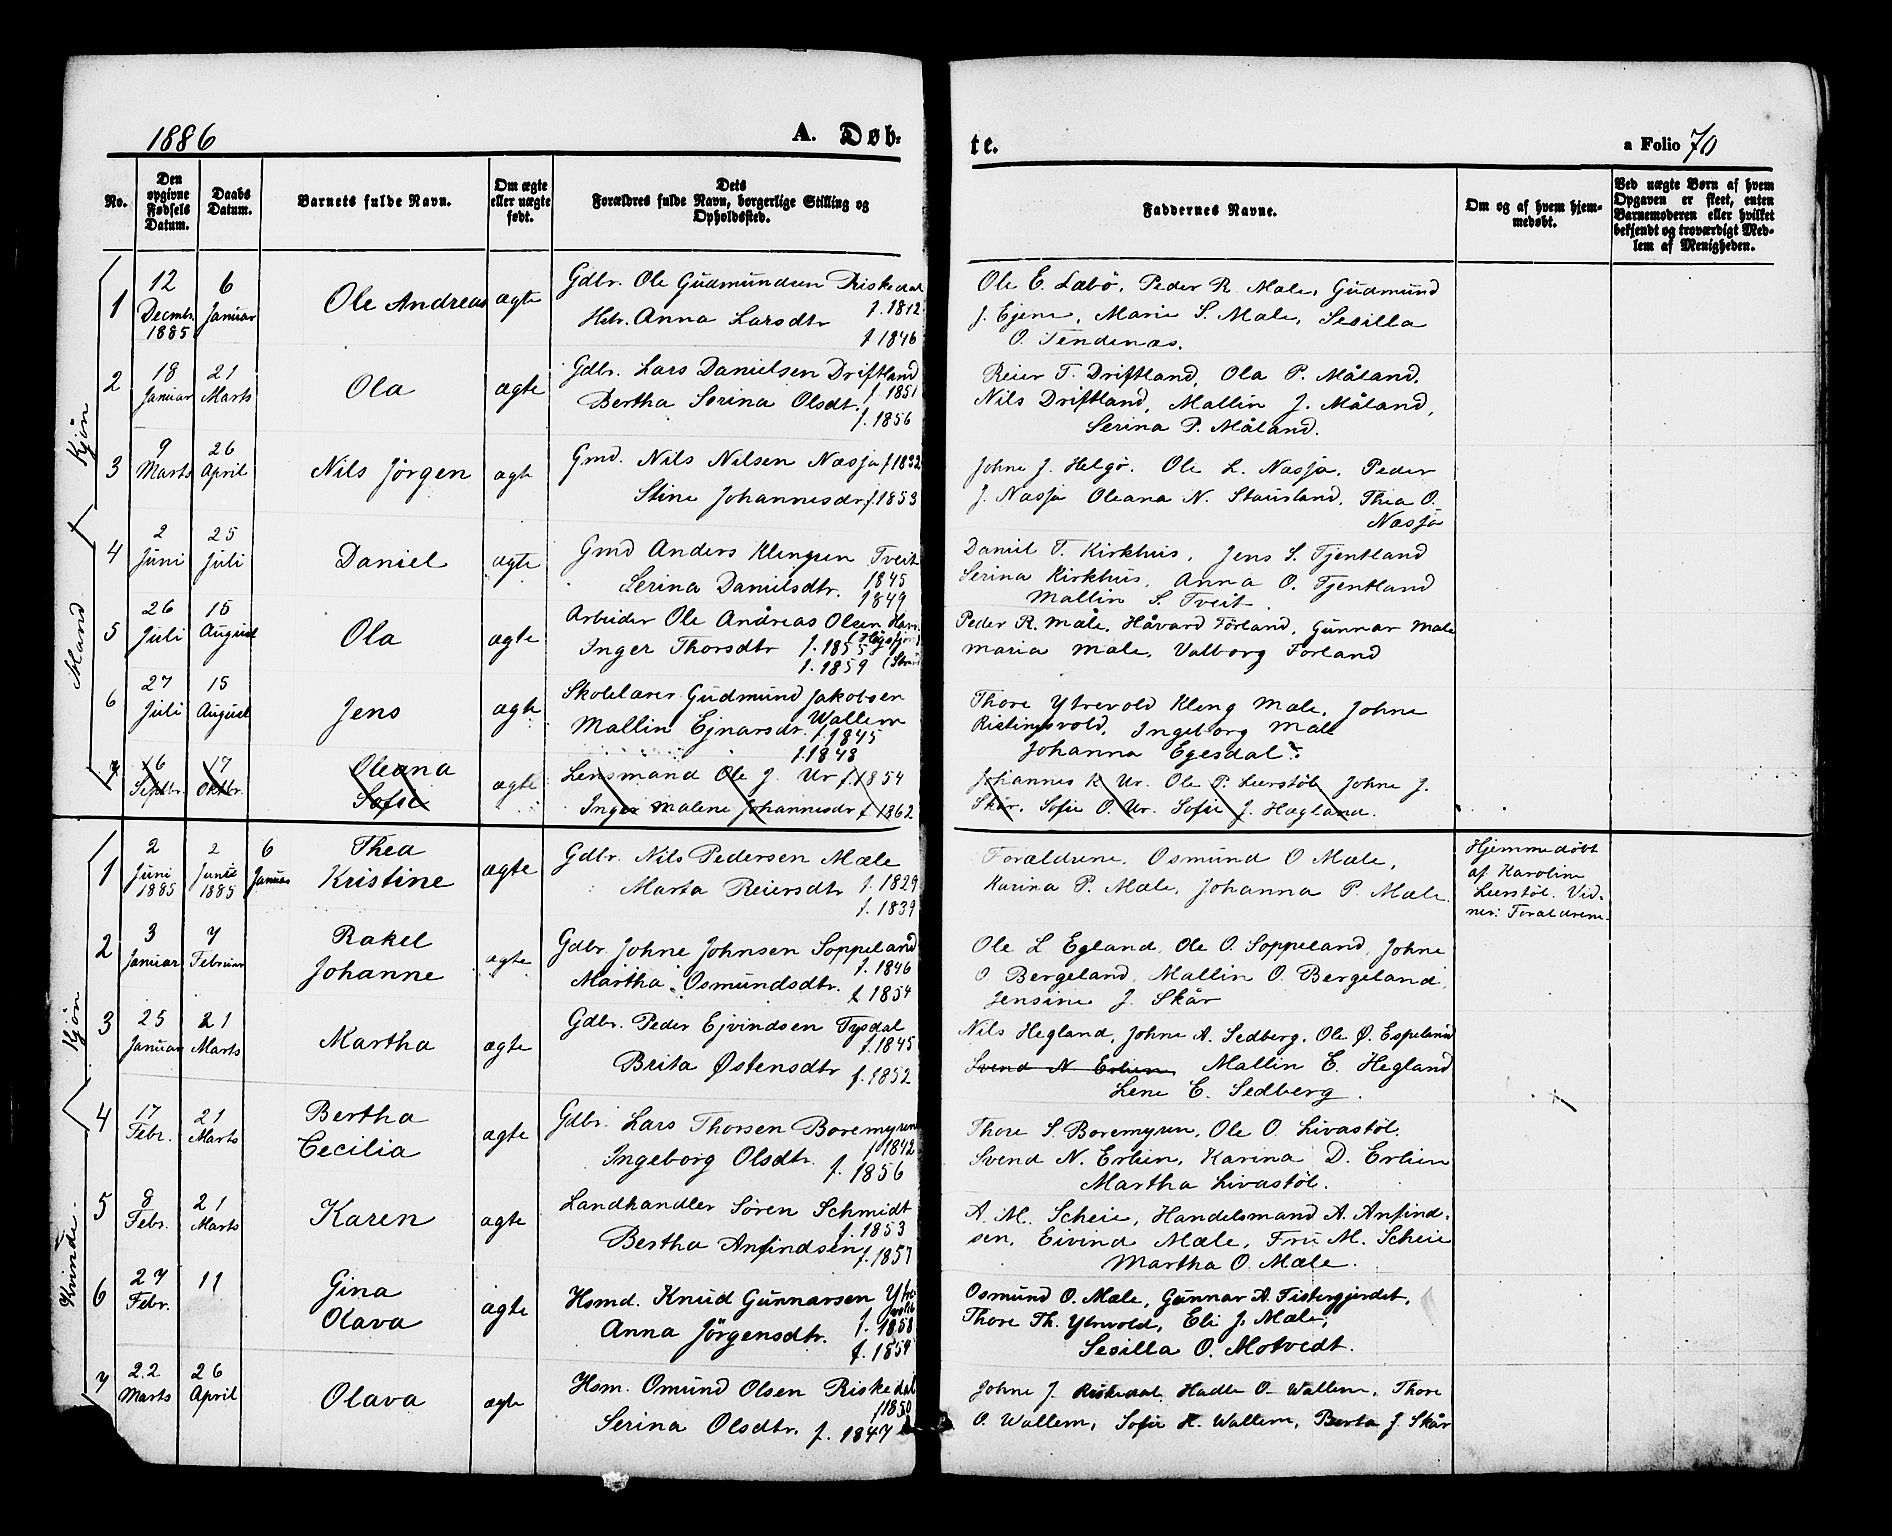 1886
A. Døb-
te.
a Folio 70
No.
Den opgivne Fødsels Datum.
Daabs Datum.
Barnets fulde Navn.
Om ægte eller uægte født.
Dets Forældres fulde Navn, borgerlige Stilling og Opholdsted.
Faddernes Navne.
Om og af hvem hjemmedøbt.
Ved uægte Børn af hvem Opgaven er skeet, enten Barnemoderen eller hvilket bekjendt og troværdigt Medlem af Menigheden.
Mand Kjön
1
12 Decmbr. 1885
6 Januar
Ole Andreas
ægte
Gdbr. Ole Gudmundsen Riskedal f. 1812
Hstr. Anna Larsdtr f 1846
Ole E. Labö, Peder R. Mæle, Gudmund
J. Ejene, Marie S. Mæle, Sesilla
O. Tendenæs.
2
18 Januar
21 Marts
Ola
ægte
Gdbr. Lars Danielsen Driftland f. 1851
Bertha Serina Olsdt. f. 1856
Reier T. Driftland, Ola P. Måland,
Nils Driftland, Mallin J. Måland,
Serina P. Måland.
3
9 Marts
26 April
Nils Jörgen
ægte
Gmd. Nils Nilsen Næsja f 1832
Stine Johannesdr f. 1853
Johne J. Helgö. Ole L. Næsja, Peder
J. Næsja Oleana N. Stausland, Thea O.
Næsja
4
2 Juni
25 Juli
Daniel
ægte
Gmd Anders Klengsen Tveit 1845
Serina Danielsdtr. 1849
Daniel T. Kirkhus, Jens S. Tjentland
Serina Kirkhus, Anna O. Tjentland
Mallin S. Tveit.
5
26 Juli
15 August
Ola
ægte
Arbeider Ole Andreas Olsen
Inger Thorsdtr f. 1855 (Høgsfjord)
f. 1859
Peder R. Mæle, Håvard Förland, Gunnar Mæle
Maria Mæle, Valborg Förland
6
27 Juli
15 August
Jens
ægte
Skolelærer Gudmund Jakobsen
Wallem f. 1845
Mallin Ejnarsdr. f. 1848
Thore Ytrevold Kleng Mæle, Johne
Ristingsvold, Ingeborg Mæle
Johanna Egesdal.
7
16 Septbr.
17 Oktbr.
Oleana Sofie
ægte
Lensmand Ole J. Ur f. 1854
Inger Malene Johannesdr f 1862
Johannes K Ur. Ole P. Leerstöl Johne J.
Skår. Sofie O. Ur. Sofie J. Hægland.
Kvinde Kjön
1
2 Juni 1885
2 Juni 1885
6 Januar
Thea Kristine
ægte
Gdbr. Nils Pedersen Mæle f. 1829
Marta Reiersdtr f. 1839
Forældrene, Osmund O Mæle,
Karina P. Mæle, Johanna P. Mæle.
Hjemmedøbt
af Karoline
Leerstöl. Vid-
ner: Forældrene.
2
3 Januar
7 Februar
Rakel Johanne
ægte
Gdbr. Johne Johnsen Soppeland f. 1846
Martha Osmundsdtr. f. 1854
Ole L Egland, Ole O. Soppeland, Johne
O Bergeland, Mallin O. Bergeland,
Jensine J. Skår
3
25 Januar
21 Marts
Martha
ægte
Gdbr. Peder Ejvindsen Tysdal f. 1845
Brita Østensdtr f. 1852
Nils Hegland, Johne A. Sedberg, Ole Ø. Espeland
Svend N Erlien, Mallin E. Hegland
Lene E. Sedberg.
4
17 Febr.
21 Marts
Bertha Cecilia
ægte
Gdbr. Lars Thorsen Boremyren f 1842
Ingeborg Olsdtr. f. 1856
Thore S. Boremyren, Ole O. Livastöl,
Svend N. Erlien, Karina D. Erlien
Martha Livastöl.
5
8 Febr.
21 Marts
Karen
ægte
Landhandler Sören Schmidt f. 1853
Bertha Anfindsen f. 1857
A. M. Scheie, Handelsmand A. Anfind-
sen, Eivind Mæle, Fru M. Scheie
Martha O. Mæle.
6
27 Febr.
11
Gina Olava
ægte
Hsmd. Knud Gunnarsen Ytrevold f. 1858
Anna Jörgensdtr. f. 1859
Osmund O. Mæle, Gunnar A. Tistergjerdet,
Thore Th. Ytrevold, Eli J. Mæle,
Sesilla O. Motvedt.
7
22 Marts
26 April
Olava
ægte
Hsm. Omund Olsen Riskedal f 1850
Serina Olsdtr. f. 1847
Johne J. Riskedal, Hadle O Wallem, Thore
O. Wallem, Sofie H. Wallem, Berta J. Skår